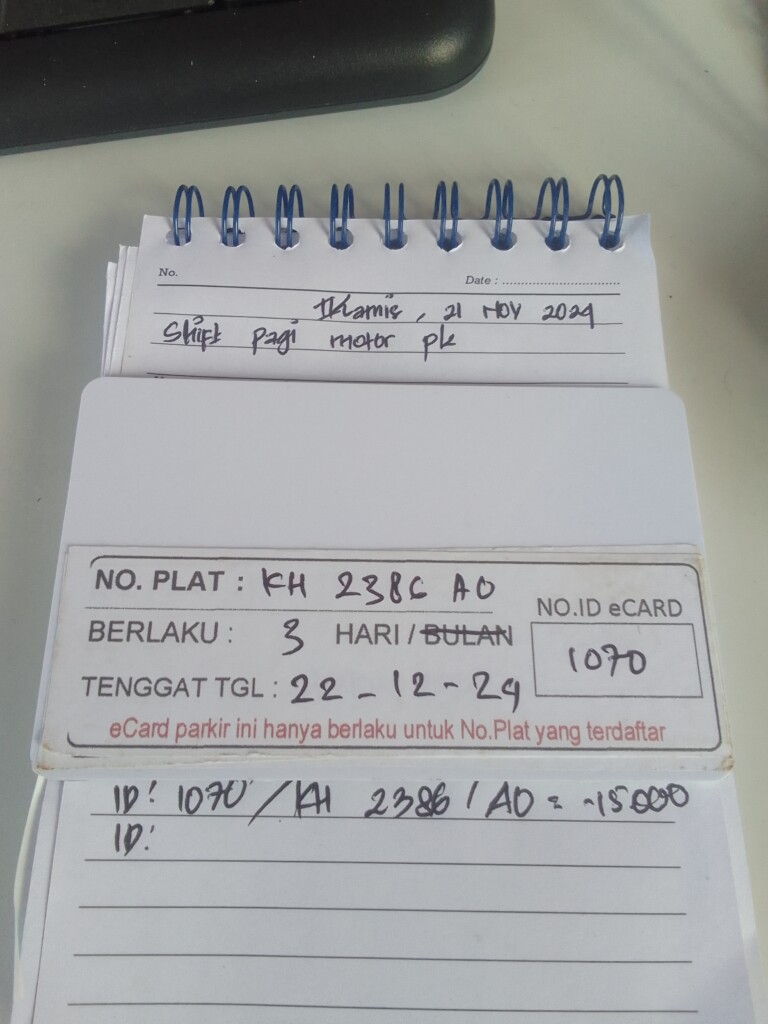 No.
Date : ................................
Kamis, 21 NOV 2024
Shift pagi motor pk
NO. PLAT : KH 2386 AO
NO.ID eCARD
BERLAKU : 3 HARI / BULAN
1070
TENGGAT TGL : 22-12-24
eCard parkir ini hanya berlaku untuk No.Plat yang terdaftar
ID: 1070 / KH 2386 / AO = -15.000
ID: